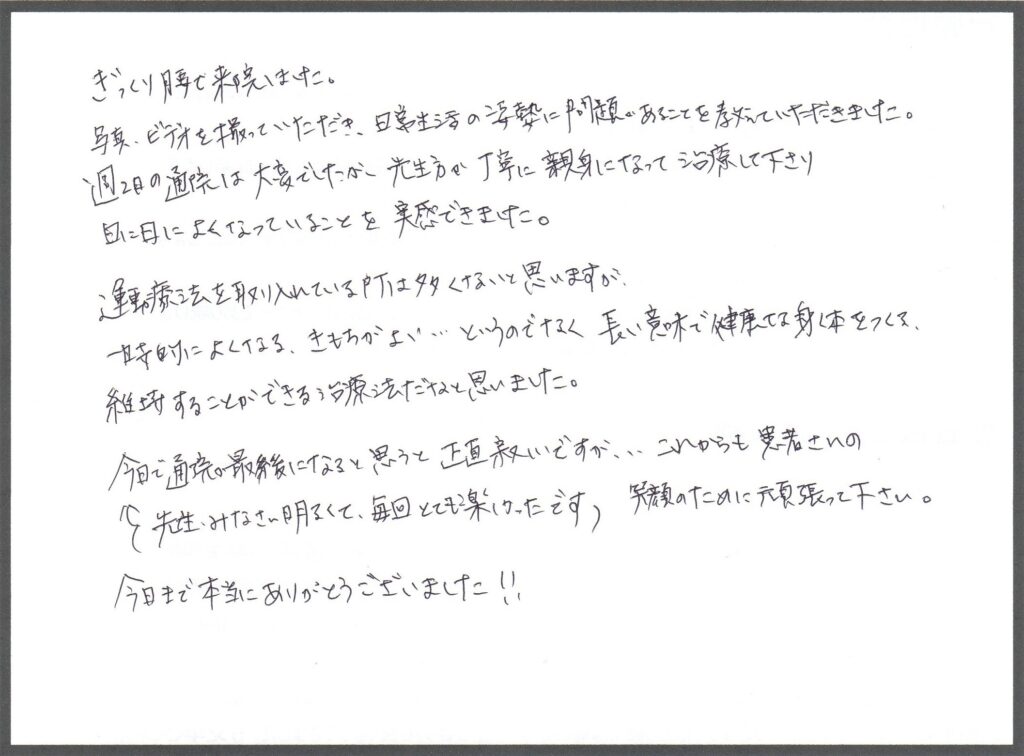 ぎっくり腰で来院しました。
写真、ビデオを撮っていただき、日常生活の姿勢に問題があることを教えていただきました。
週2日の通院は大変でしたが、先生方が丁寧に親身になって治療して下さり
日に日によくなっていることを実感できました。
運動療法を取り入れている所は多くないと思いますが、
一時的によくなる、きもちがよい…というのでなく長い意味で健康な身体をつくる、
維持することができる治療法だなと思いました。
今日で通院が最後になると思うと正直寂しいですが、… これからも患者さんの
(先生、みなさん明るくて、毎回とても楽しかったです) 笑顔のために頑張って下さい。
今日まで本当にありがとうございました!!